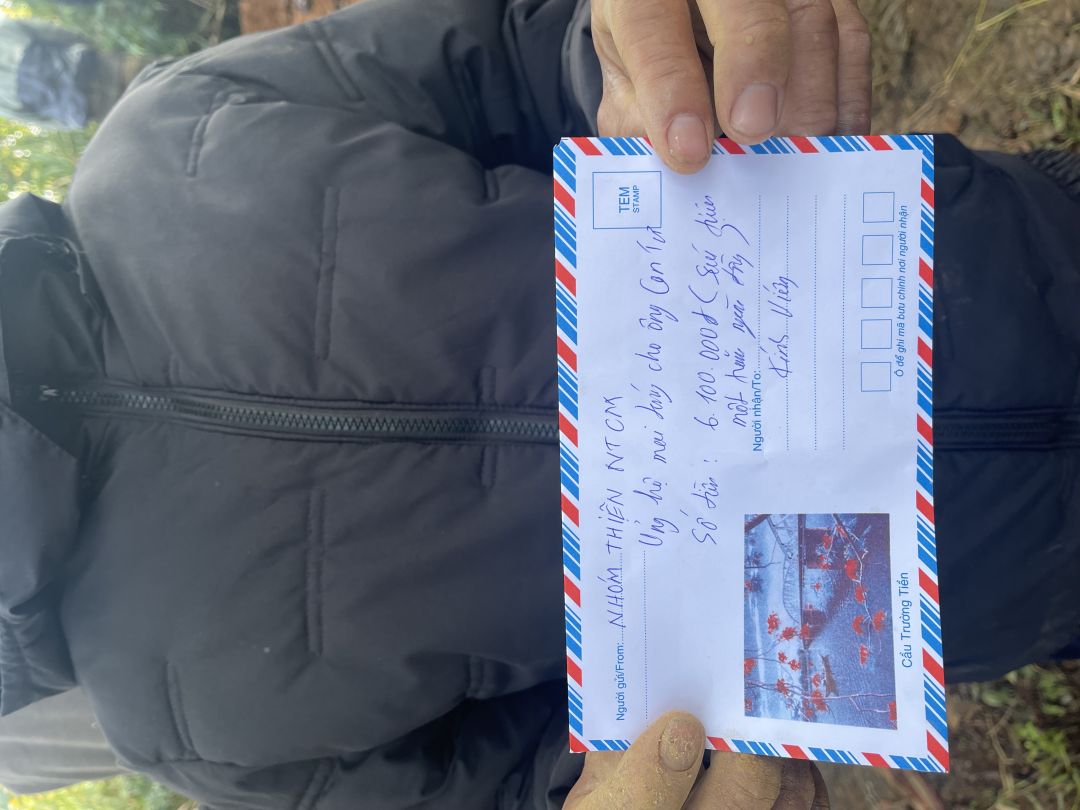 Người gửi/From: NHÓM THIỆN NTCM
TEM
STAMP
Ủng hộ mai táng cho ông Con Tư
Số tiền: 6.100.000đ (Sáu triệu
một trăm ngàn đồng)
Người nhận/To:
Kính Viếng
Cầu Trường Tiền
Ô để ghi mã bưu chính nơi người nhận